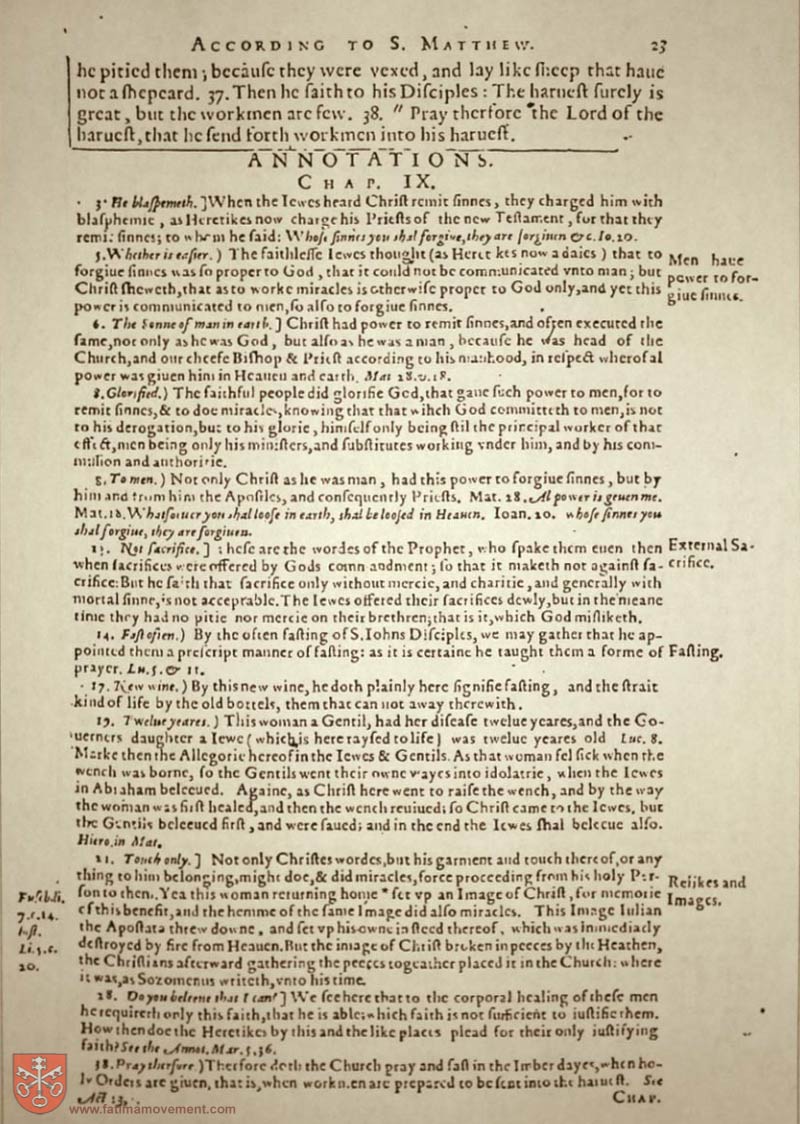 ACCORDING TO S. MATTHEW. 23
he pitied them; becauſe they were vexed, and lay like ſheep that haue
not a ſhepeard. 37. Then he ſaith to his Diſciples: The harueſt ſurely is
great, but the workmen are few. 38. " Pray therfore the Lord of the
harueſt, that he ſend forth workmen into his harueſt.
ANNOTATIONS.
CHAP. IX.
3. He blaſpemeth. ] When the Iewes heard Chriſt remit ſinnes, they charged him with
blaſphemie, as Heretikes now charge his Prieſts of the new Teſtament, for that they
remit ſinnes; to whom he ſaid: Whoſe ſinnes you ſhal forgiue, they are forgiuen &c. Io. 20.
5. Whether is eaſier. ) The faithleſſe Iewes thought (as Heretikes now a daies) that to
forgiue ſinnes was ſo proper to God, that it could not be communicated vnto man; but
Chriſt ſheweth, that as to worke miracles is otherwiſe proper to God only, and yet this
power is communicated to men, ſo alſo to forgiue ſinnes.
Men haue
power to for-
giue ſinnes.
6. The Sonne of man in earth. ] Chriſt had power to remit ſinnes, and often executed the
ſame, not only as he was God, but alſo as he was a man, becauſe he was head of the
Church, and our cheefe Biſhop & Prieſt according to his manhood, in reſpect wherof al
power was giuen him in Heauen and earth. Mat 28. v. 18.
8. Glorified. ) The faithful people did glorifie God, that gaue ſuch power to men, for to
remit ſinnes, & to doe miracles, knowing that that wihch God committeth to men, is not
to his derogation, but to his glorie, himſelf only being ſtil the principal worker of that
effect, men being only his miniſters, and ſubſtitutes working vnder him, and by his com-
miſsion and authoritie.
8. To men. ) Not only Chriſt as he was man, had this power to forgiue ſinnes, but by
him and from him the Apoſtles, and conſequently Prieſts. Mat. 28. Al power is geuen me.
Mat. 18. Whatſoeuer you ſhal looſe in earth, ſhal be looſed in Heauen. Ioan. 20. whoſe ſinnes you
ſhal forgiue, they are forgiuen.
13. Not ſacrifice. ] Theſe are the wordes of the Prophet, who ſpake them euen then
when ſacrifices were offered by Gods comandment; ſo that it maketh not againſt ſa-
crifice: But he ſaith that ſacrifice only without mercie, and charitie, and generally with
mortal ſinne, is not acceprable. The Iewes offered their ſacrifices dewly, but in the meane
time they had no pitie nor mercie on their brethren; that is it, which God miſliketh.
External Sa-
crifice.
14. Faſt often. ) By the often faſting of S. Iohns Diſciples, we may gather that he ap-
pointed them a preſcript manner of faſting: as it is certaine he taught them a forme of
prayer. Lu. 5. & 11.
Faſting.
17. New wine. ) By this new wine, he doth plainly here ſignifie faſting, and the ſtrait
kind of life by the old bottels, them that can not away therewith.
19. Twelue yeares. ) This woman a Gentil, had her diſeaſe twelue yeares, and the Go-
uerners daughter a Iewe (which is here rayſed to life) was twelue yeares old Luc. 8.
Marke then the Allegorie hereof in the Iewes & Gentils. As that woman fel ſick when the
wench was borne, ſo the Gentils went their owne wayes into idolatrie, when the Iewes
in Abraham beleeued. Againe, as Chriſt here went to raiſe the wench, and by the way
the woman was firſt healed, and then the wench reuiued; ſo Chriſt came to the Iewes, but
the Gentils beleeued firſt, and were ſaued; and in the end the Iewes ſhal beleeue alſo.
Hiero. in Mat.
21. Touch only. ] Not only Chriſtes wordes, but his garment and touch thereof, or any
thing to him belonging, might doe, & did miracles, force proceeding from his holy Per-
ſon to them. Yea this woman returning home * ſet vp an Image of Chriſt, for memorie
of this benefit, and the hemme of the ſame Image did alſo miracles. This Image Iulian
the Apoſtata threw downe, and ſet vp his owne in ſteed thereof, which was immediatly
deſtroyed by fire from Heauen. But the image of Chriſt broken in peeces by the Heathen,
the Chriſtians afterward gathering the peeces togeather placed it in the Church: where
it was, as Sozomenus writeth, vnto his time.
Relikes and
Images.
Euſeb. li.
7. c. 14.
hiſt.
Li. 5. c.
20.
28. Do you beleeue that I can? ] We ſee here that to the corporal healing of theſe men
he requireth only this faith, that he is able: which faith is not ſufficient to iuſtifie them.
How then doe the Heretikes by this and the like places plead for their only iuſtifying
faith? See the Annot. Mar. 5, 36.
38. Pray therfore ) Therfore doth the Church pray and faſt in the Imber dayes, when ho-
ly Orders are giuen, that is, when workmen are prepared to be ſent into the harueſt. See
Act 13,
CHAP.
www.fatimamovement.com